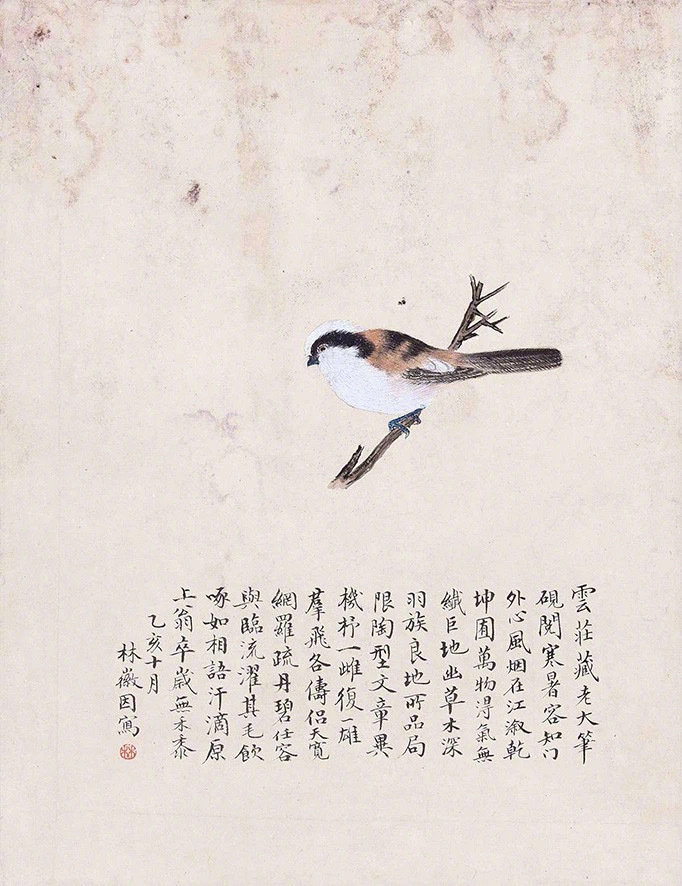 雲莊藏老大筆
硯閱寒暑容知门
外心風烟在江淑乾
坤囿萬物淂氣無
纎巨地幽草木深
羽族良地所品局
限陶型文章異
機杼一雌復一雄
羣飛各儔侣天寬
網羅疏丹碧任容
與臨流濯其毛飲
啄如相語汗滴原
上翁卒歲無禾黍
乙亥十月
林徽因寫